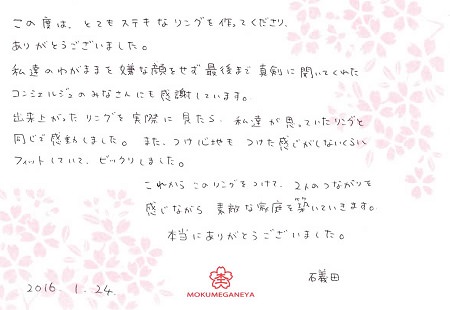 この度は、とてもステキなリングを作ってくださり、
ありがとうございました。
私達のわがままを嫌な顔をせず最後まで真剣に聞いてくれた
コンシェルジュのみなさんにも感謝しています。
出来上がったリングを実際に見たら、私達が思っていたリングと
同じで感動しました。また、つけ心地もつけた感じがしないくらい
フィットしていて、ビックリしました。
これからこのリングをつけて、2人のつながりを
感じながら素敵な家庭を築いていきます。
本当にありがとうございました。
2016. 1. 24.
MOKUMEGANEYA